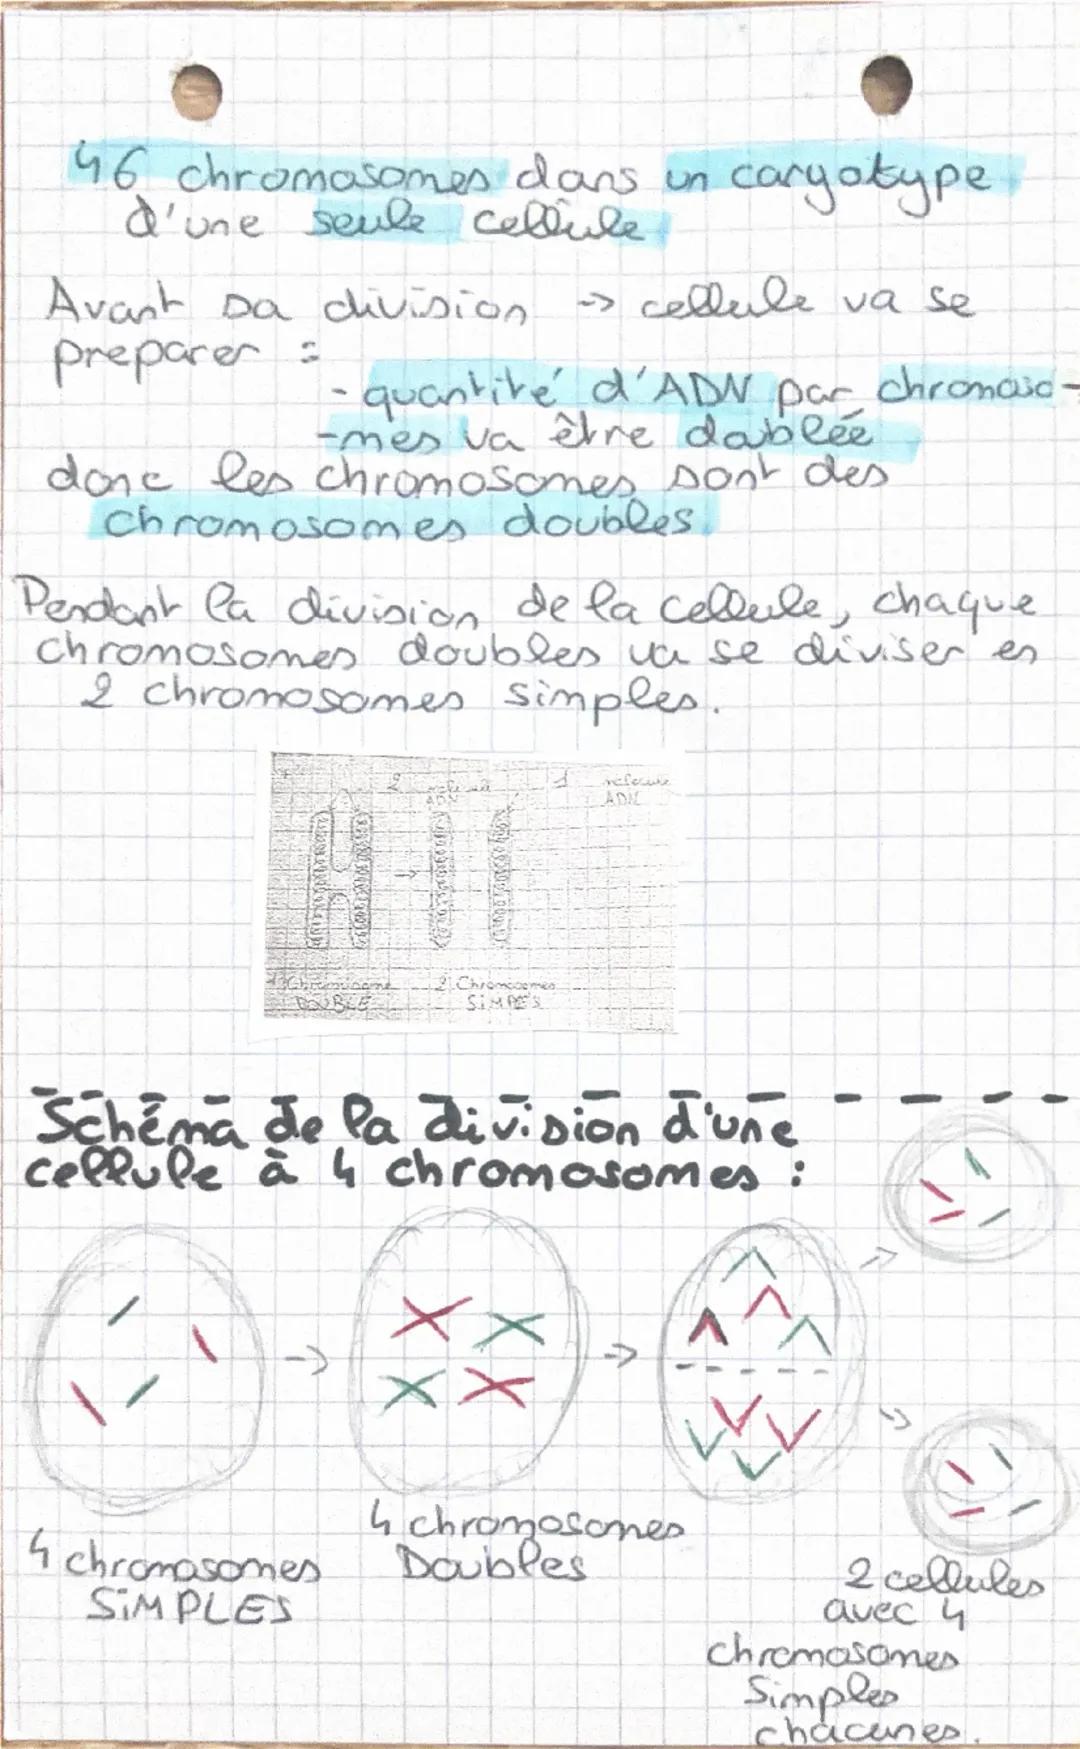 46 chromosomes dans un caryotype
d'une seule cellule
Avant sa division -> cellule va se
preparer :
- quantité d'ADN par chromoso-
-mes va être doublée
donc les chromosomes sont des
chromosomes doubles.
Pendant la division de la cellule, chaque
chromosomes doubles va se diviser en
2 chromosomes simples.
2 ADN
1 ADN
1 Chromosome
DOUBLE
2 Chromosomes
SiMPLES
Schéma de la division d'une
cellule à 4 chromosomes :
4 chromosomes
SiMPLES
4 chromosomes
Doubles
2 cellules
avec 4
chromosomes
Simples
chacunes.